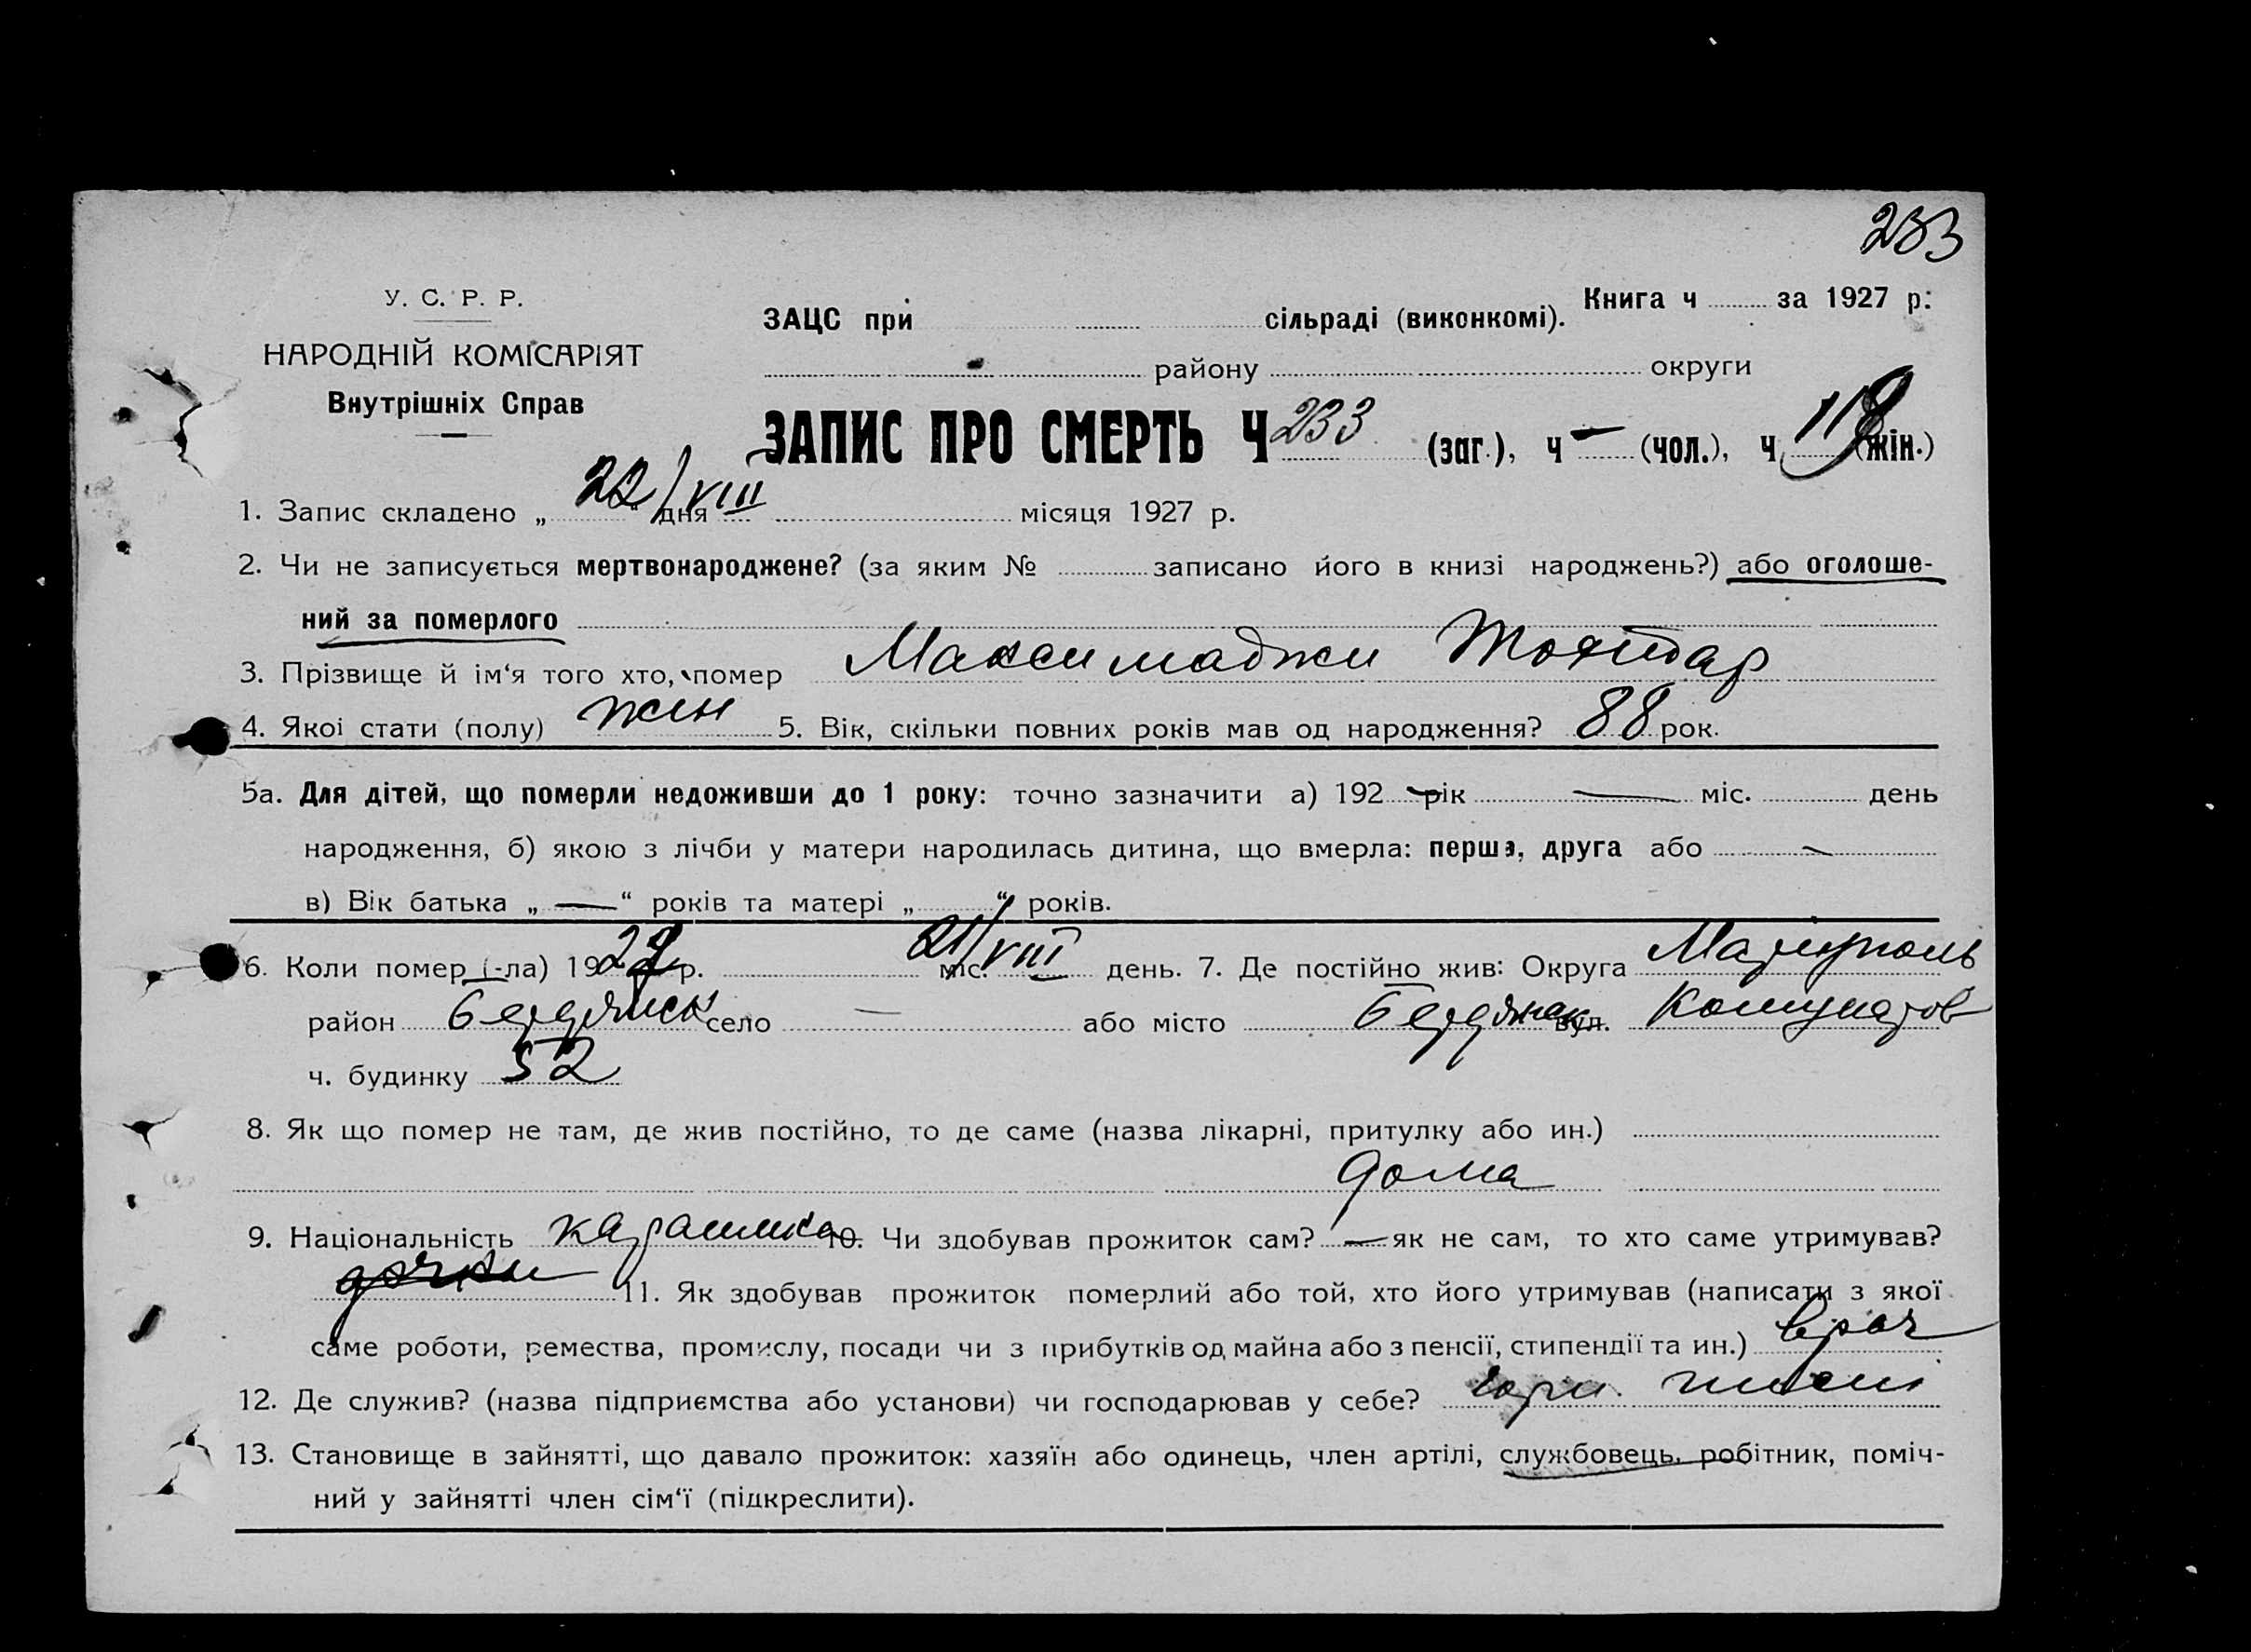 233
У. С. Р. Р.
НАРОДНІЙ КОМІСАРІЯТ
Внутрішніх Справ
ЗАЦС при сільраді (виконкомі). Книга ч за 1927 р.
району округи
ЗАПИС ПРО СМЕРТЬ Ч 233 (заг.), ч — (чол.), ч 119 (жін.)
1. Запис складено „ 22/VIII “ дня місяця 1927 р.
2. Чи не записується мертвонароджене? (за яким № записано його в книзі народжень?) або оголоше-
ний за померлого
3. Прізвище й ім‘я того хто, помер Максимаджи
4. Якої стати (полу) жен 5. Вік, скільки повних років мав од народження? 88 рок.
5а. Для дітей, що померли недоживши до 1 року: точно зазначити а) 192 — рік — міс. день
народження, б) якою з лічби у матери народилась дитина, що вмерла: перша, друга або —
в) Вік батька „ — “ років та матері „ “ років.
6. Коли помер (-ла) 1927 р. 21/VIII міс. день. 7. Де постійно жив: Округа Мариуполь
район Бердянск село — або місто Бердянск вул. Комунаров
ч. будинку 52
8. Як що помер не там, де жив постійно, то де саме (назва лікарні, притулку або ин.)
дома
9. Національність караимка 10. Чи здобував прожиток сам? — як не сам, то хто саме утримував?
дочки 11. Як здобував прожиток померлий або той, хто його утримував (написати з якої
саме роботи, ремества, промислу, посади чи з прибутків од майна або з пенсії, стипендії та ин.) врач
12. Де служив? (назва підприємства або установи) чи господарював у себе?
13. Становище в зайнятті, що давало прожиток: хазяїн або одинець, член артілі, службовець, робітник, поміч-
ний у зайнятті член сім‘ї (підкреслити).